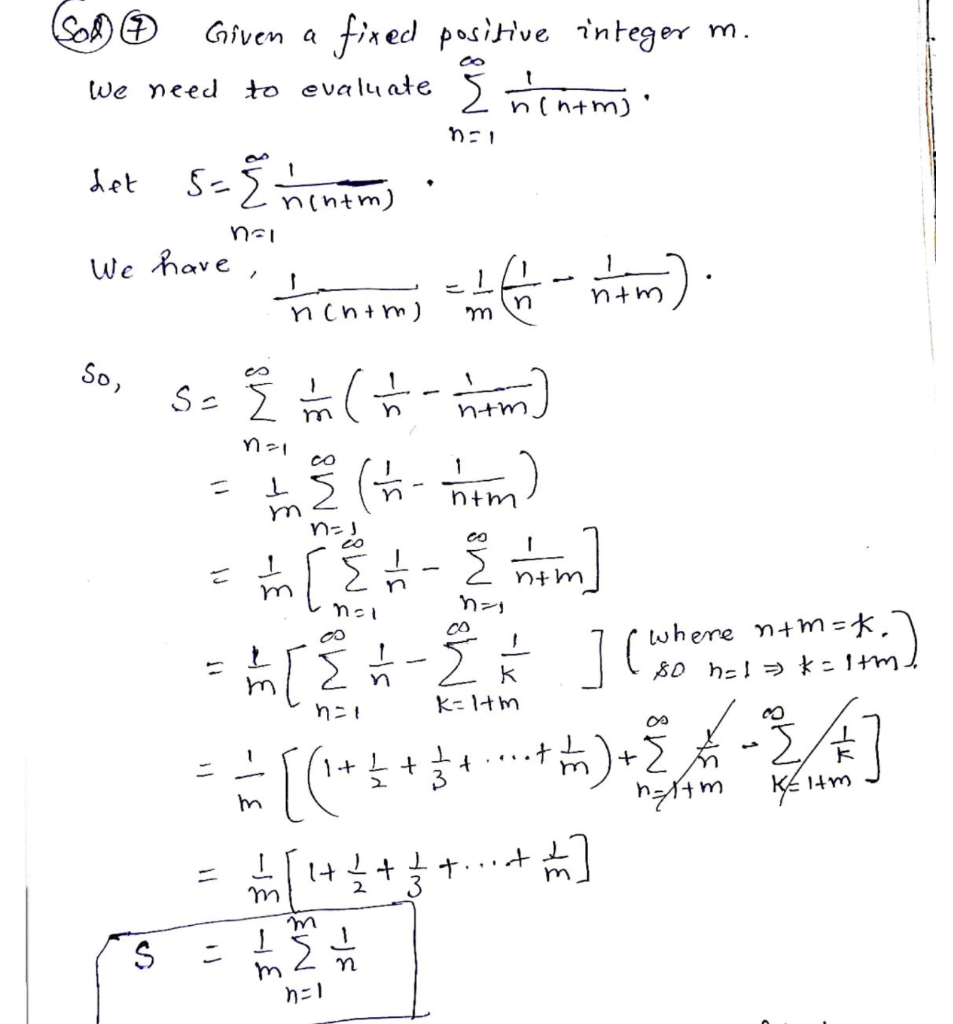 Sol 7 Given a fixed positive integer m.
We need to evaluate \sum_{n=1}^{\infty} \frac{1}{n(n+m)}.
Let S = \sum_{n=1}^{\infty} \frac{1}{n(n+m)}.
We have, \frac{1}{n(n+m)} = \frac{1}{m}(\frac{1}{n} - \frac{1}{n+m}).
So, S = \sum_{n=1}^{\infty} \frac{1}{m}(\frac{1}{n} - \frac{1}{n+m})
= \frac{1}{m} \sum_{n=1}^{\infty} (\frac{1}{n} - \frac{1}{n+m})
= \frac{1}{m}[\sum_{n=1}^{\infty} \frac{1}{n} - \sum_{n=1}^{\infty} \frac{1}{n+m}]
= \frac{1}{m}[\sum_{n=1}^{\infty} \frac{1}{n} - \sum_{k=1+m}^{\infty} \frac{1}{k}] (where n+m=k. so n=1 ⇒ k=1+m.)
= \frac{1}{m}[(1 + \frac{1}{2} + \frac{1}{3} + ..... + \frac{1}{m}) + \sum_{n=1+m}^{\infty} \frac{1}{n} - \sum_{k=1+m}^{\infty} \frac{1}{k}]
= \frac{1}{m}[1 + \frac{1}{2} + \frac{1}{3} + .... + \frac{1}{m}]
S = \frac{1}{m} \sum_{n=1}^{m} \frac{1}{n}